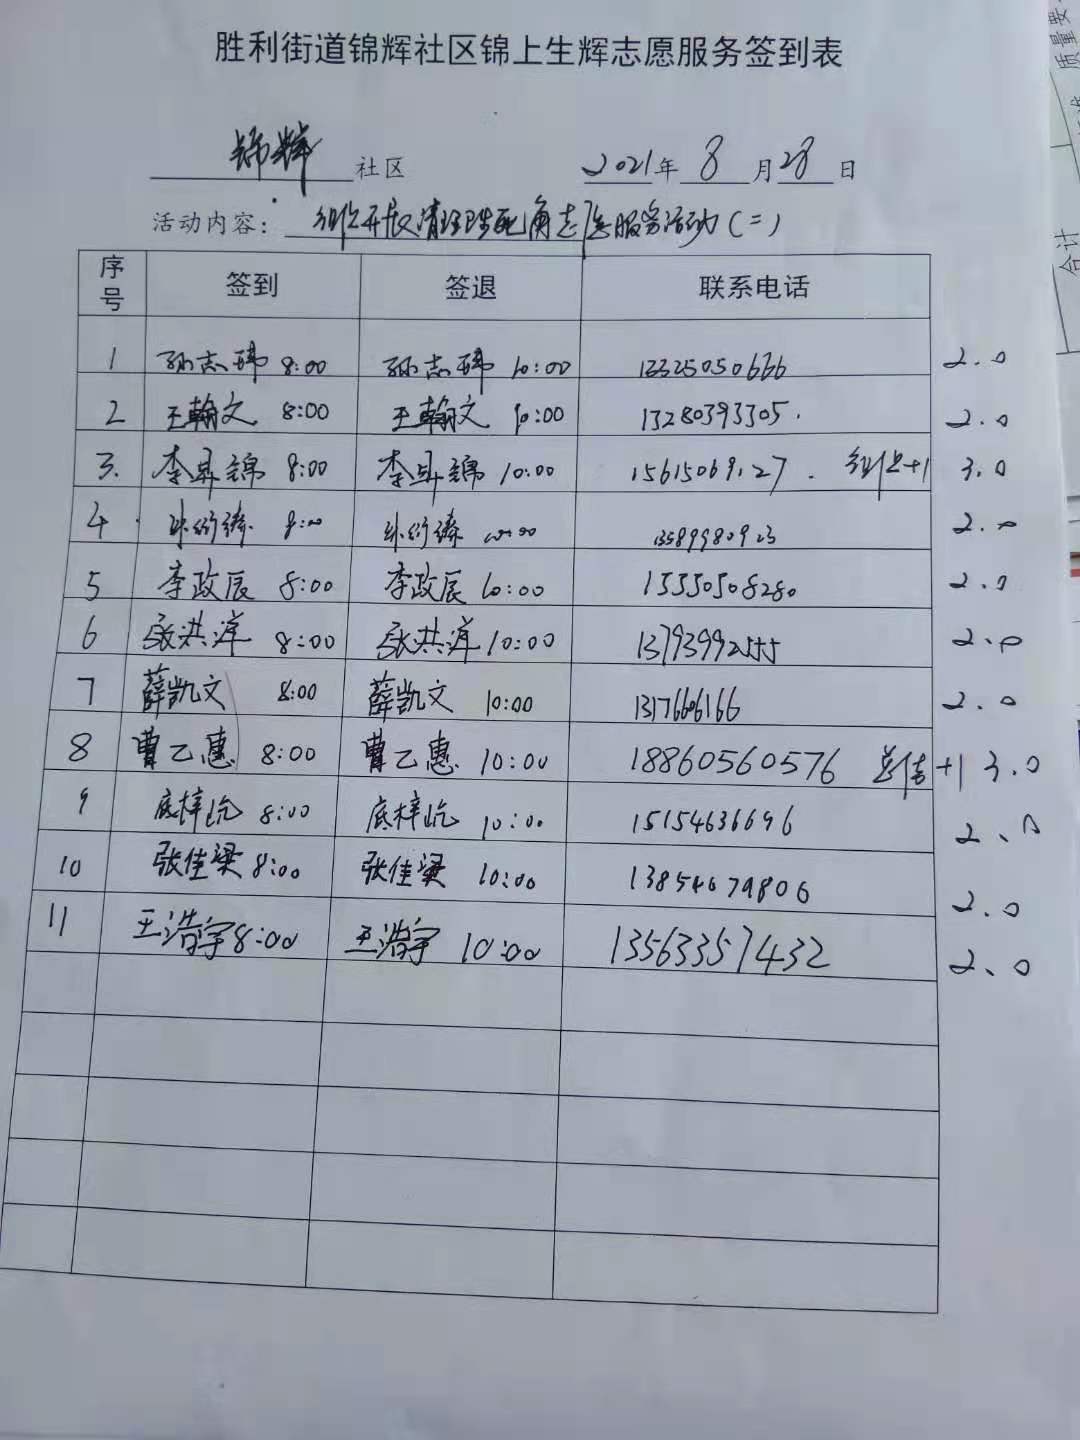 胜利街道锦辉社区锦上生辉志愿服务签到表
锦辉 社区 2021年 8 月 28 日
活动内容: 组织开展清理卫生死角志愿服务活动(二)
序号 签到 签退 联系电话
1 孙志玮 8:00 孙志玮 10:00 13325050666 2.0
2 王翰文 8:00 王翰文 10:00 13280393305. 2.0
3. 李昇锦 8:00 李昇锦 10:00 15615069127. 组织+1 3.0
4 8:00 10:00 13589980923 2.0
5 李政辰 8:00 李政辰 10:00 15550508280 2.0
6 张洪洋 8:00 张洪洋 10:00 13793992555 2.0
7 薛凯文 8:00 薛凯文 10:00 13176606166 2.0
8 曹乙惠 8:00 曹乙惠 10:00 18860560576 总结+1 3.0
9 底梓屹 8:00 底梓屹 10:00 15154636696 2.0
10 张佳梁 8:00 张佳梁 10:00 13854679806 2.0
11 王浩宇 8:00 王浩宇 10:00 13563357432 2.0
质量要
合计